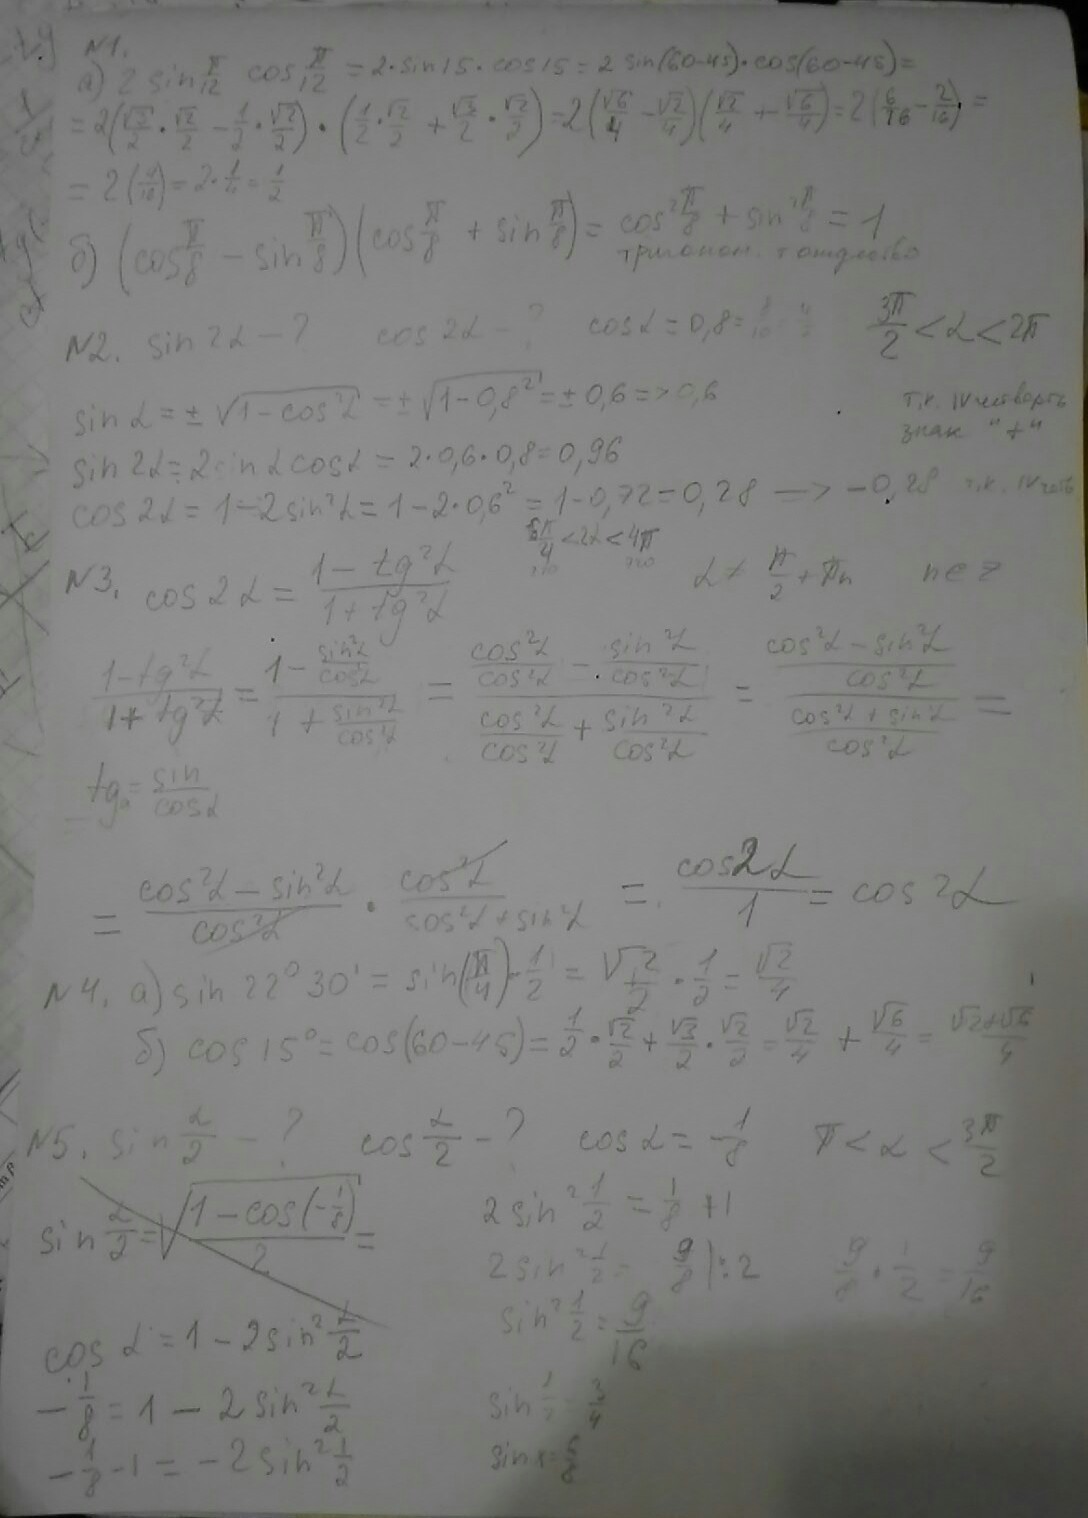 N1.
а) 2 sin π/12 cos π/12 = 2·sin15·cos15 = 2 sin(60-45)·cos(60-45) =
= 2(√3/2 · √2/2 - 1/2 · √2/2)·(1/2 · √2/2 + √3/2 · √2/2) = 2(√6/4 - √2/4)(√2/4 + √6/4) = 2(6/16 - 2/16) =
= 2(4/16) = 2·1/4 = 1/2
б) (cos π/8 - sin π/8)(cos π/8 + sin π/8) = cos² π/8 + sin² π/8 = 1
тригоном. тождество
N2. sin 2α - ? cos 2α - ? cos α = 0,8 = 3π/2 < α < 2π
sin α = ± √(1-cos²α) = ± √(1-0,8²) = ± 0,6 => 0,6 т.к. IV четверть
знак "+"
sin 2α = 2 sin α cos α = 2·0,6·0,8 = 0,96
cos 2α = 1 - 2 sin²α = 1 - 2·0,6² = 1 - 0,72 = 0,28 —> -0,28 т.к. IV четв
6π/4 < 2α < 4π
N3. cos 2α = (1 - tg²α)/(1 + tg²α) α ≠ π/2 + πn n ∈ z
(1 - tg²α)/(1 + tg²α) = (1 - sin²α/cos²α)/(1 + sin²α/cos²α) = (cos²α/cos²α - sin²α/cos²α)/(cos²α/cos²α + sin²α/cos²α) = ((cos²α - sin²α)/cos²α)/((cos²α + sin²α)/cos²α) =
tg = sin/cosα
= (cos²α - sin²α)/cos²α · cos²α/(cos²α + sin²α) = cos2α/1 = cos 2α
N4. а) sin 22° 30' = sin(π/4)·1/2 = √2/2 · 1/2 = √2/4
б) cos 15° = cos(60-45) = 1/2 · √2/2 + √3/2 · √2/2 = √2/4 + √6/4 = (√2+√6)/4
N5. sin α/2 - ? cos α/2 - ? cos α = -1/8 π < α < 3π/2
sin α/2 = √((1 - cos(-1/8))/2) =
cos α = 1 - 2 sin² α/2
-1/8 = 1 - 2 sin² α/2
-1/8 - 1 = -2 sin² 1/2
2 sin² 1/2 = 1/8 + 1
2 sin² 1/2 = 9/8 |:2 9/8 · 1/2 = 9/16
sin² 1/2 = 9/16
sin 1/2 = 3/4